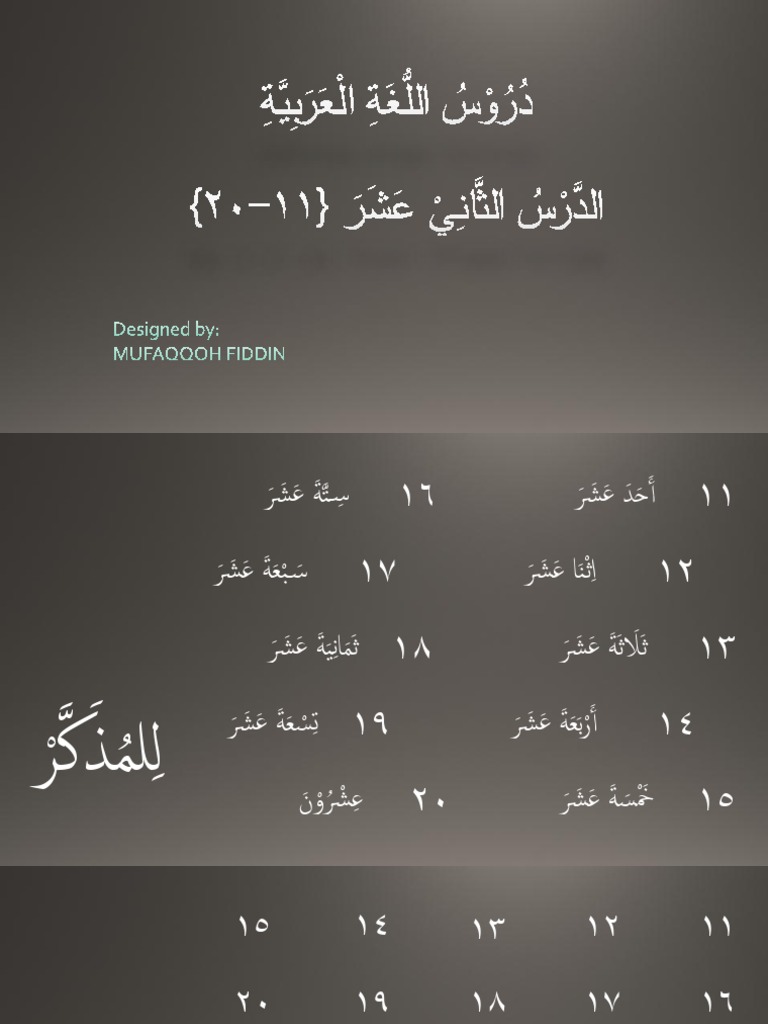 دُرُوْسُ اللُّغَةِ الْعَرَبِيَّةِ
الدَّرْسُ الثَّانِيْ عَشَرَ {١١-٢٠}
Designed by:
MUFAQQOH FIDDIN
١١ أَحَدَ عَشَرَ ١٦ سِتَّةَ عَشَرَ
١٢ اِثْنَا عَشَرَ ١٧ سَبْعَةَ عَشَرَ
١٣ ثَلَاثَةَ عَشَرَ ١٨ ثَمَانِيَةَ عَشَرَ
١٤ أَرْبَعَةَ عَشَرَ ١٩ تِسْعَةَ عَشَرَ
١٥ خَمْسَةَ عَشَرَ ٢٠ عِشْرُوْنَ
لِلمُذَكَّرْ
١١ ١٢ ١٣ ١٤ ١٥
١٦ ١٧ ١٨ ١٩ ٢٠